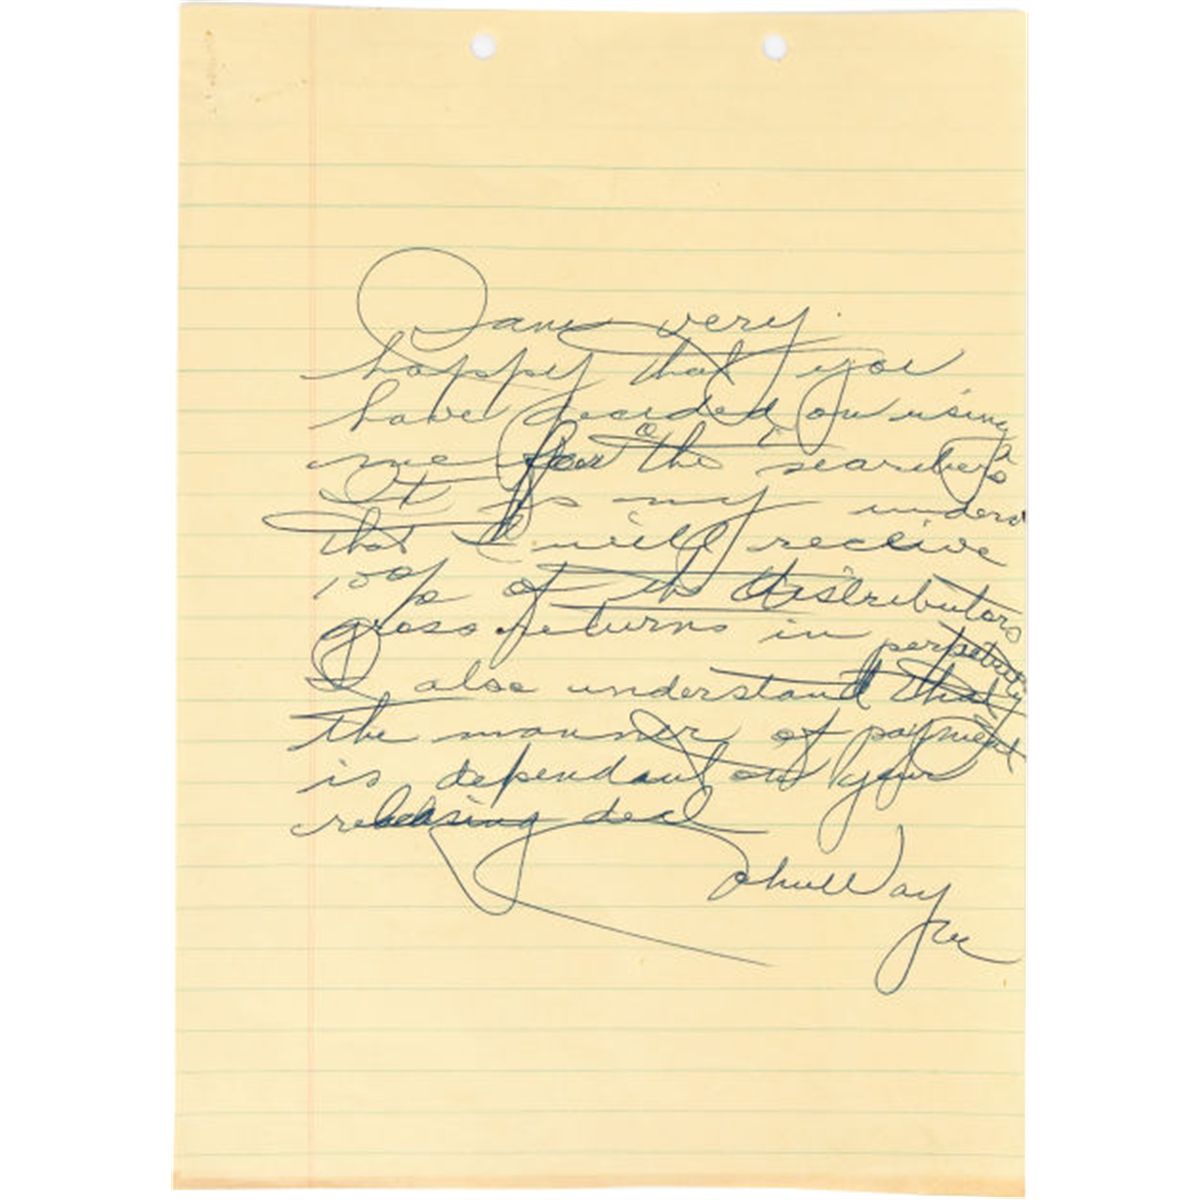 I am very
happy that you
have decided on using
me for the searchers
It is my unders
that I will receive
10% of the distributors
gross returns in perpetuity
I also understand that
the manner of payment
is dependant on your
releasing deal
John Wayne